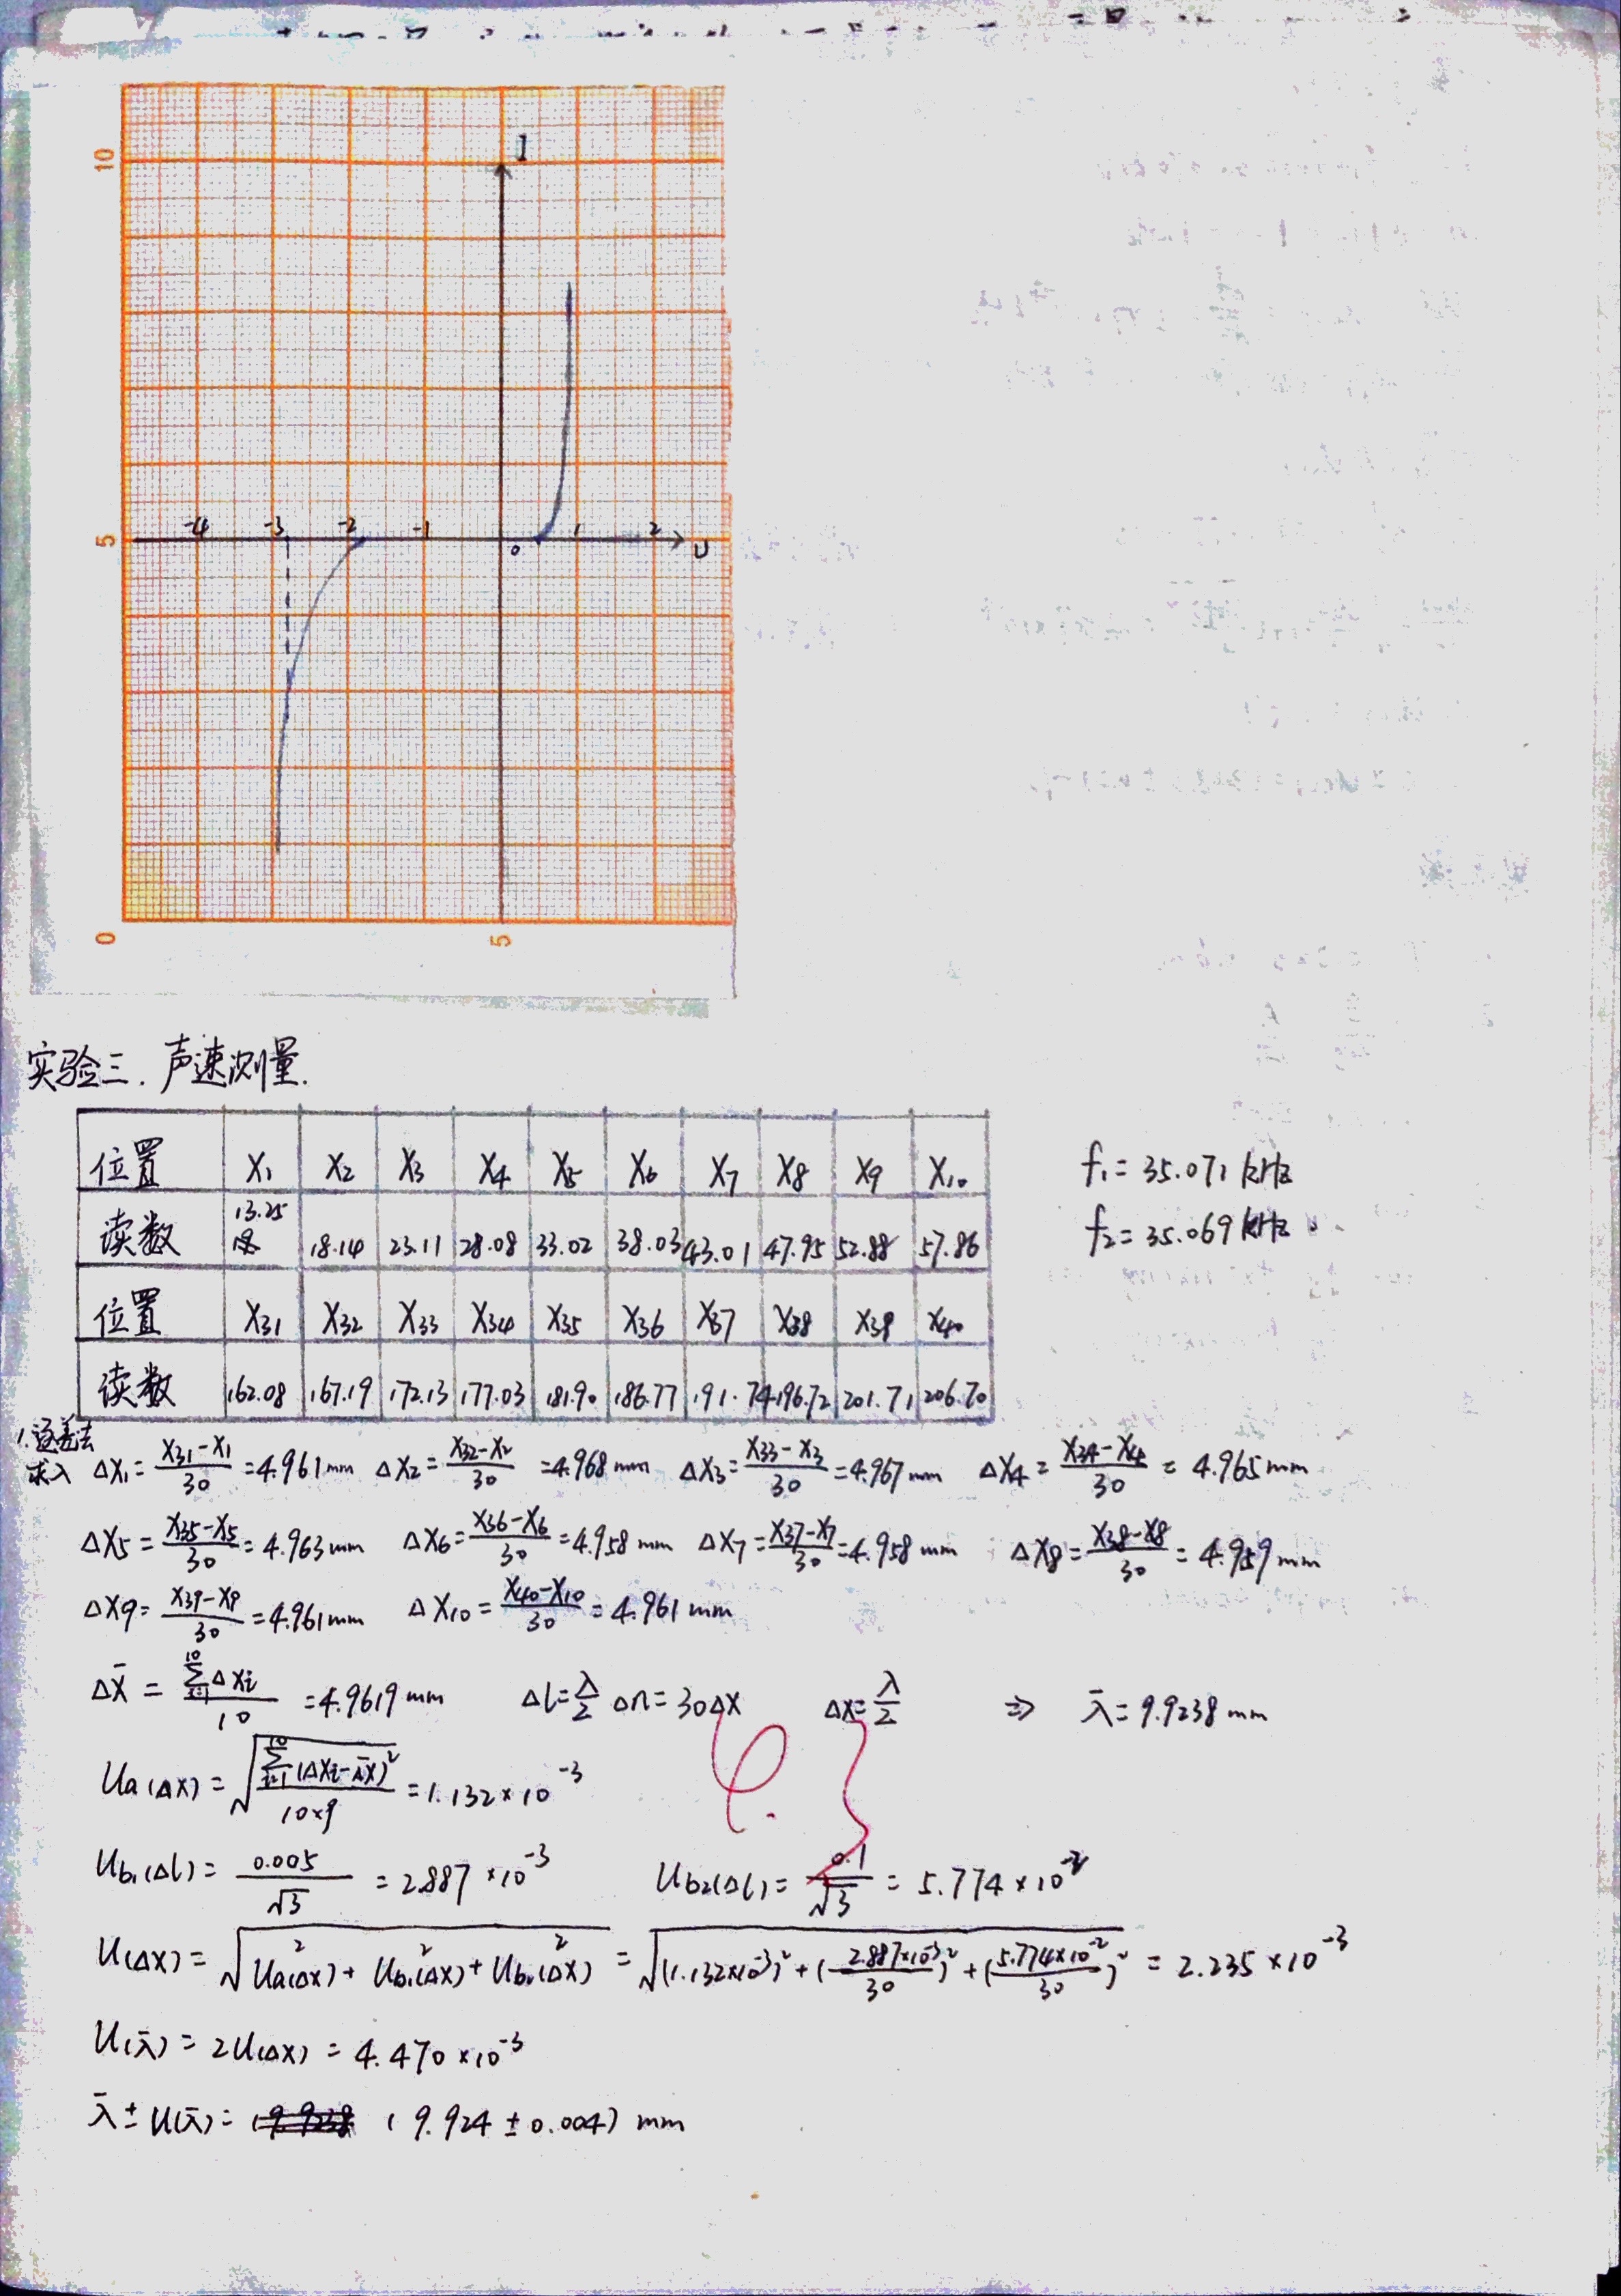 10
I
5
-4 -3 -2 -1 0 1 2 U
0
5
实验三. 声速测量.
位置 X₁ X₂ X₃ X₄ X₅ X₆ X₇ X₈ X₉ X₁₀
f₁ = 35.071 kHz
读数 13.25 18.14 23.11 28.08 33.02 38.03 43.01 47.95 52.88 57.86
f₂ = 35.069 kHz
位置 X₃₁ X₃₂ X₃₃ X₃₄ X₃₅ X₃₆ X₃₇ X₃₈ X₃₉ X₄₀
读数 162.08 167.19 172.13 177.03 181.90 186.77 191.74 196.72 201.71 206.70
1. 逐差法
求λ ΔX₁ = (X₃₁-X₁)/30 = 4.961mm ΔX₂ = (X₃₂-X₂)/30 = 4.968mm ΔX₃ = (X₃₃-X₃)/30 = 4.967mm ΔX₄ = (X₃₄-X₄)/30 = 4.965mm
ΔX₅ = (X₃₅-X₅)/30 = 4.963mm ΔX₆ = (X₃₆-X₆)/30 = 4.958mm ΔX₇ = (X₃₇-X₇)/30 = 4.958mm ΔX₈ = (X₃₈-X₈)/30 = 4.959mm
ΔX₉ = (X₃₉-X₉)/30 = 4.961mm ΔX₁₀ = (X₄₀-X₁₀)/30 = 4.961mm
ΔX̄ = Σᵢ₌₁¹⁰ΔXi/10 = 4.9619mm Δl = λ/2 Δn = 30ΔX ΔX = λ/2 ⇒ λ̄ = 9.9238mm
Ua(ΔX) = √(Σᵢ₌₁¹⁰(ΔXi-ΔX̄)²/(10×9)) = 1.132×10⁻³
Ub₁(Δl) = 0.005/√3 = 2.887×10⁻³ Ub₂(Δl) = 0.1/√3 = 5.774×10⁻²
U(ΔX) = √(Ua²(ΔX) + Ub₁²(ΔX) + Ub₂²(ΔX)) = √((1.132×10⁻³)² + (2.887×10⁻³/30)² + (5.774×10⁻²/30)²) = 2.235×10⁻³
U(λ̄) = 2U(ΔX) = 4.470×10⁻³
λ̄ ± U(λ̄) = (9.924 ± 0.004) mm